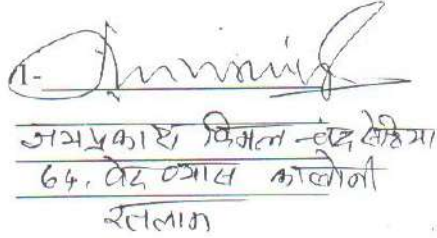 1-
जयप्रकाश विमल चंद सेठिया
64, वेद व्यास कालोनी
रतलाम